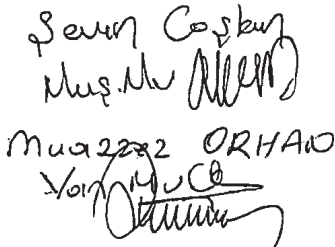 Sevin Coşkun
Muş.Mv
Muazzez ORHAN
Van Mv